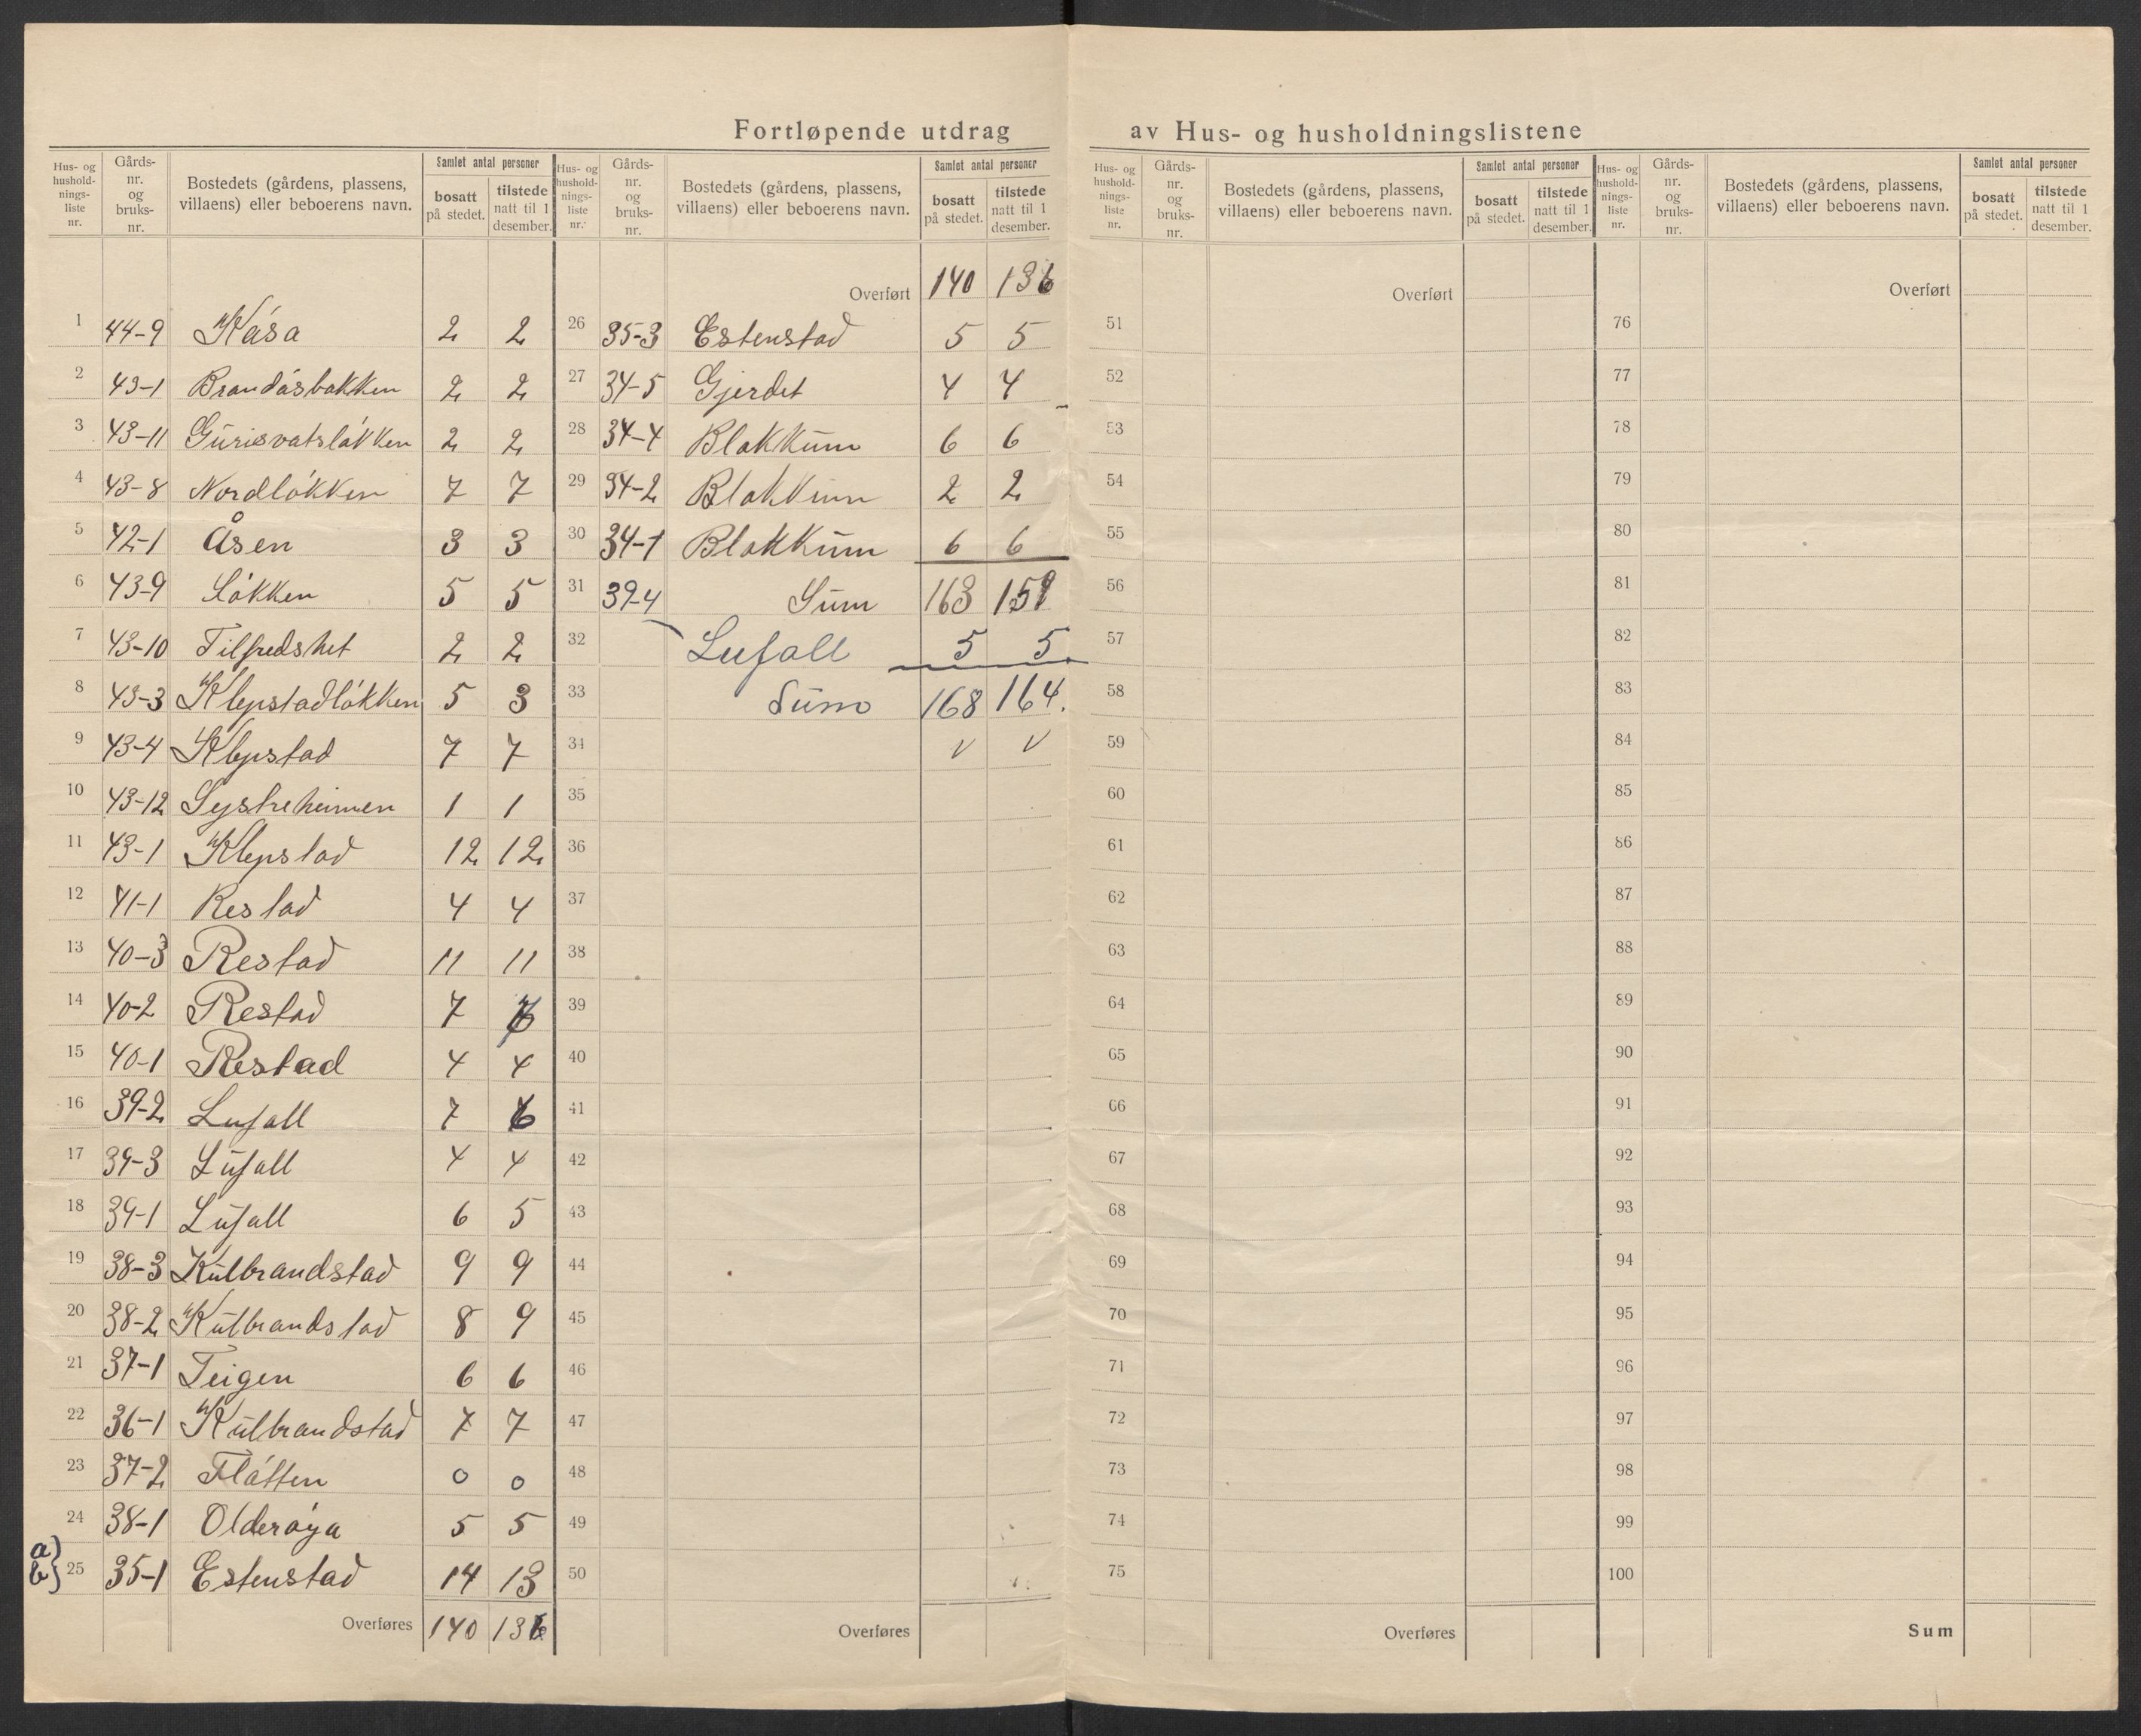 Fortløpende utdrag av Hus- og husholdningslistene
Hus- og husholdningsliste nr. Gårds-nr. og bruks-nr. Bostedets (gårdens, plassens, villaens) eller beboerens navn. Samlet antal personer bosatt på stedet. tilstede natt til 1 desember.
1 44-9 Kåsa 2 2
2 43-1 Brandåsbakken 2 2
3 43-11 Gurisvatsløkken 2 2
4 43-8 Nordløkken 7 7
5 42-1 Åsen 3 3
6 43-9 Løkken 5 5
7 43-10 Tilfredshet 2 2
8 43-3 Klepstadløkken 5 3
9 43-4 Klepstad 7 7
10 43-12 Systreheimen 1 1
11 43-1 Klepstad 12 12
12 41-1 Restad 4 4
13 40-3 Restad 11 11
14 40-2 Restad 7 6
15 40-1 Restad 4 4
16 39-2 Lufall 7 6
17 39-3 Lufall 4 4
18 39-1 Lufall 6 5
19 38-3 Kulbrandstad 9 9
20 38-2 Kulbrandstad 8 9
21 37-1 Teigen 6 6
22 36-1 Kulbrandstad 7 7
23 37-2 Flåtten 0 0
24 38-1 Olderøya 5 5
a) b) 25 35-1 Estenstad 14 13
Overføres 140 136
Hus- og husholdningsliste nr. Gårds-nr. og bruks-nr. Bostedets (gårdens, plassens, villaens) eller beboerens navn. Samlet antal personer bosatt på stedet. tilstede natt til 1 desember.
Overført 140 136
26 35-3 Estenstad 5 5
27 34-5 Gjerdet 4 4
28 34-4 Blakkum 6 6
29 34-2 Blakkum 2 2
30 34-1 Blakkum 6 6
31 39-4 Sum 163 159
32 Lufall 5 5
33 Sum 168 164.
34 v v
35
36
37
38
39
40
41
42
43
44
45
46
47
48
49
50
Overføres
Hus- og husholdningsliste nr. Gårds-nr. og bruks-nr. Bostedets (gårdens, plassens, villaens) eller beboerens navn. Samlet antal personer bosatt på stedet. tilstede natt til 1 desember.
Overført
51
52
53
54
55
56
57
58
59
60
61
62
63
64
65
66
67
68
69
70
71
72
73
74
75
Overføres
Hus- og husholdningsliste nr. Gårds-nr. og bruks-nr. Bostedets (gårdens, plassens, villaens) eller beboerens navn. Samlet antal personer bosatt på stedet. tilstede natt til 1 desember.
Overført
76
77
78
79
80
81
82
83
84
85
86
87
88
89
90
91
92
93
94
95
96
97
98
99
100
Sum